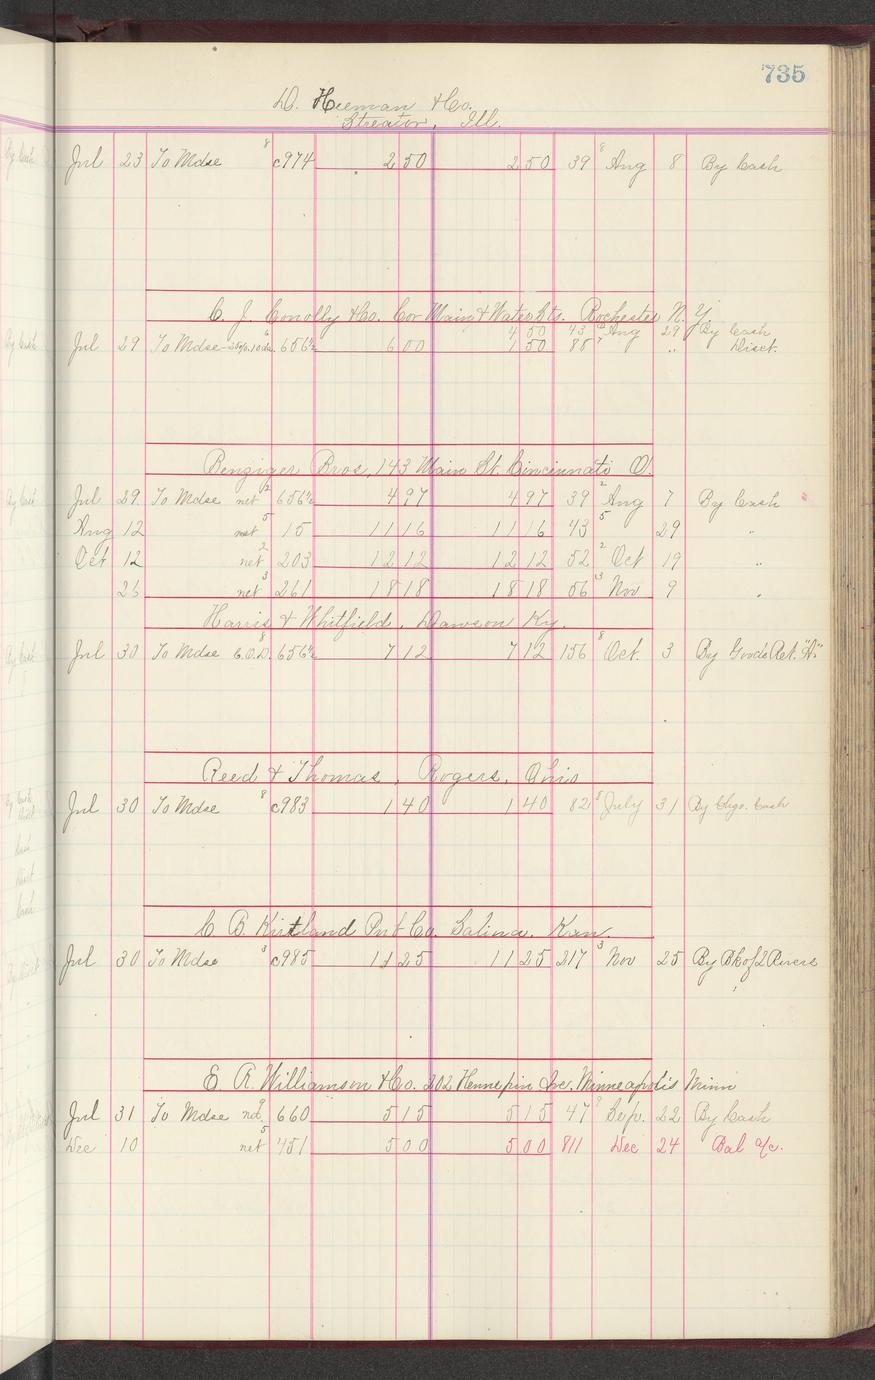 735
D. Heenan & Co.
Streator, Ill.
Jul 23 To Mdse 8 c974 2 50 2 50 39 8 Aug 8 By Cash
C. J. Conolly & Co. Cor Main & Water Sts. Rochester N. Y.
4 50 43 Aug 29 By Cash
Jul 29 To Mdse 656½ 6 00 1 50 85 7 " Disct.
Benziger Bros, 143 Main St. Cincinnati O.
Jul 29 To Mdse net 2 656½ 4 97 4 97 39 2 Aug 7 By Cash
Aug 12 net 5 15 11 16 11 16 43 5 29 "
Oct 12 net 2 203 12 12 12 12 52 2 Oct 19 "
26 net 3 261 18 18 18 18 56 3 Nov 9 "
Harris & Whitfield, Dawson Ky.
Jul 30 To Mdse C.O.D. 8 656½ 7 12 7 12 156 8 Oct. 3 By Goods Ret. "A"
Reed & Thomas, Rogers, Ohio
Jul 30 To Mdse 8 c983 1 40 1 40 82 8 July 31 By Chgo. Cash
C. B. Kirtland Pub Co. Salina, Kan.
Jul 30 To Mdse 3 c985 11 25 11 25 217 3 Nov 25 By Bk of 2 Rivers
E. R. Williamson & Co. 202 Hennepin Ave. Minneapolis Minn
Jul 31 To Mdse net 660 5 15 5 15 47 Sep. 22 By Cash
Dec 10 net 5 451 5 00 5 00 811 Dec 24 Bal a/c.